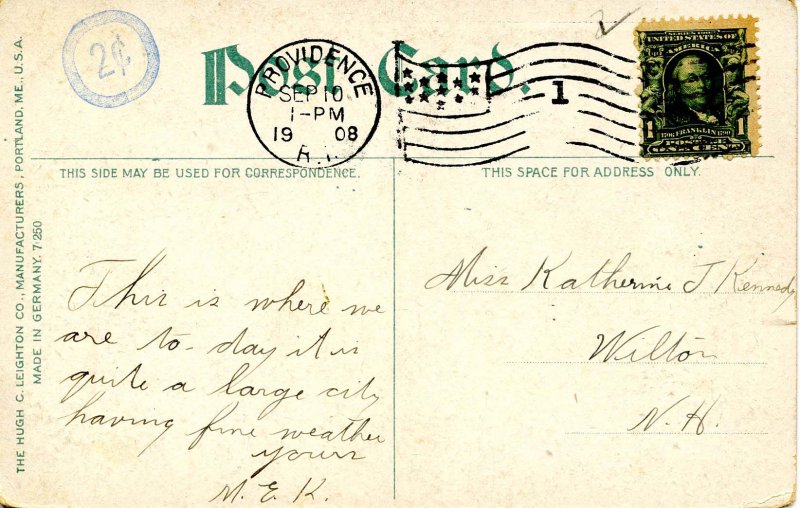 2¢
Post Card.
PROVIDENCE
SEP 10
1-PM
19 08
R.I.
1
SERIES 1902
UNITED STATES OF
AMERICA
1706 FRANKLIN 1790
1 POSTAGE 1
ONE CENT
THIS SIDE MAY BE USED FOR CORRESPONDENCE.
THIS SPACE FOR ADDRESS ONLY.
This is where we
are to-day it is
quite a large city
having fine weather
yours
M. E. K.
Miss Katherine J Kennedy
Wilton
N. H.
THE HUGH C. LEIGHTON CO., MANUFACTURERS, PORTLAND, ME., U.S.A.
MADE IN GERMANY. 7250